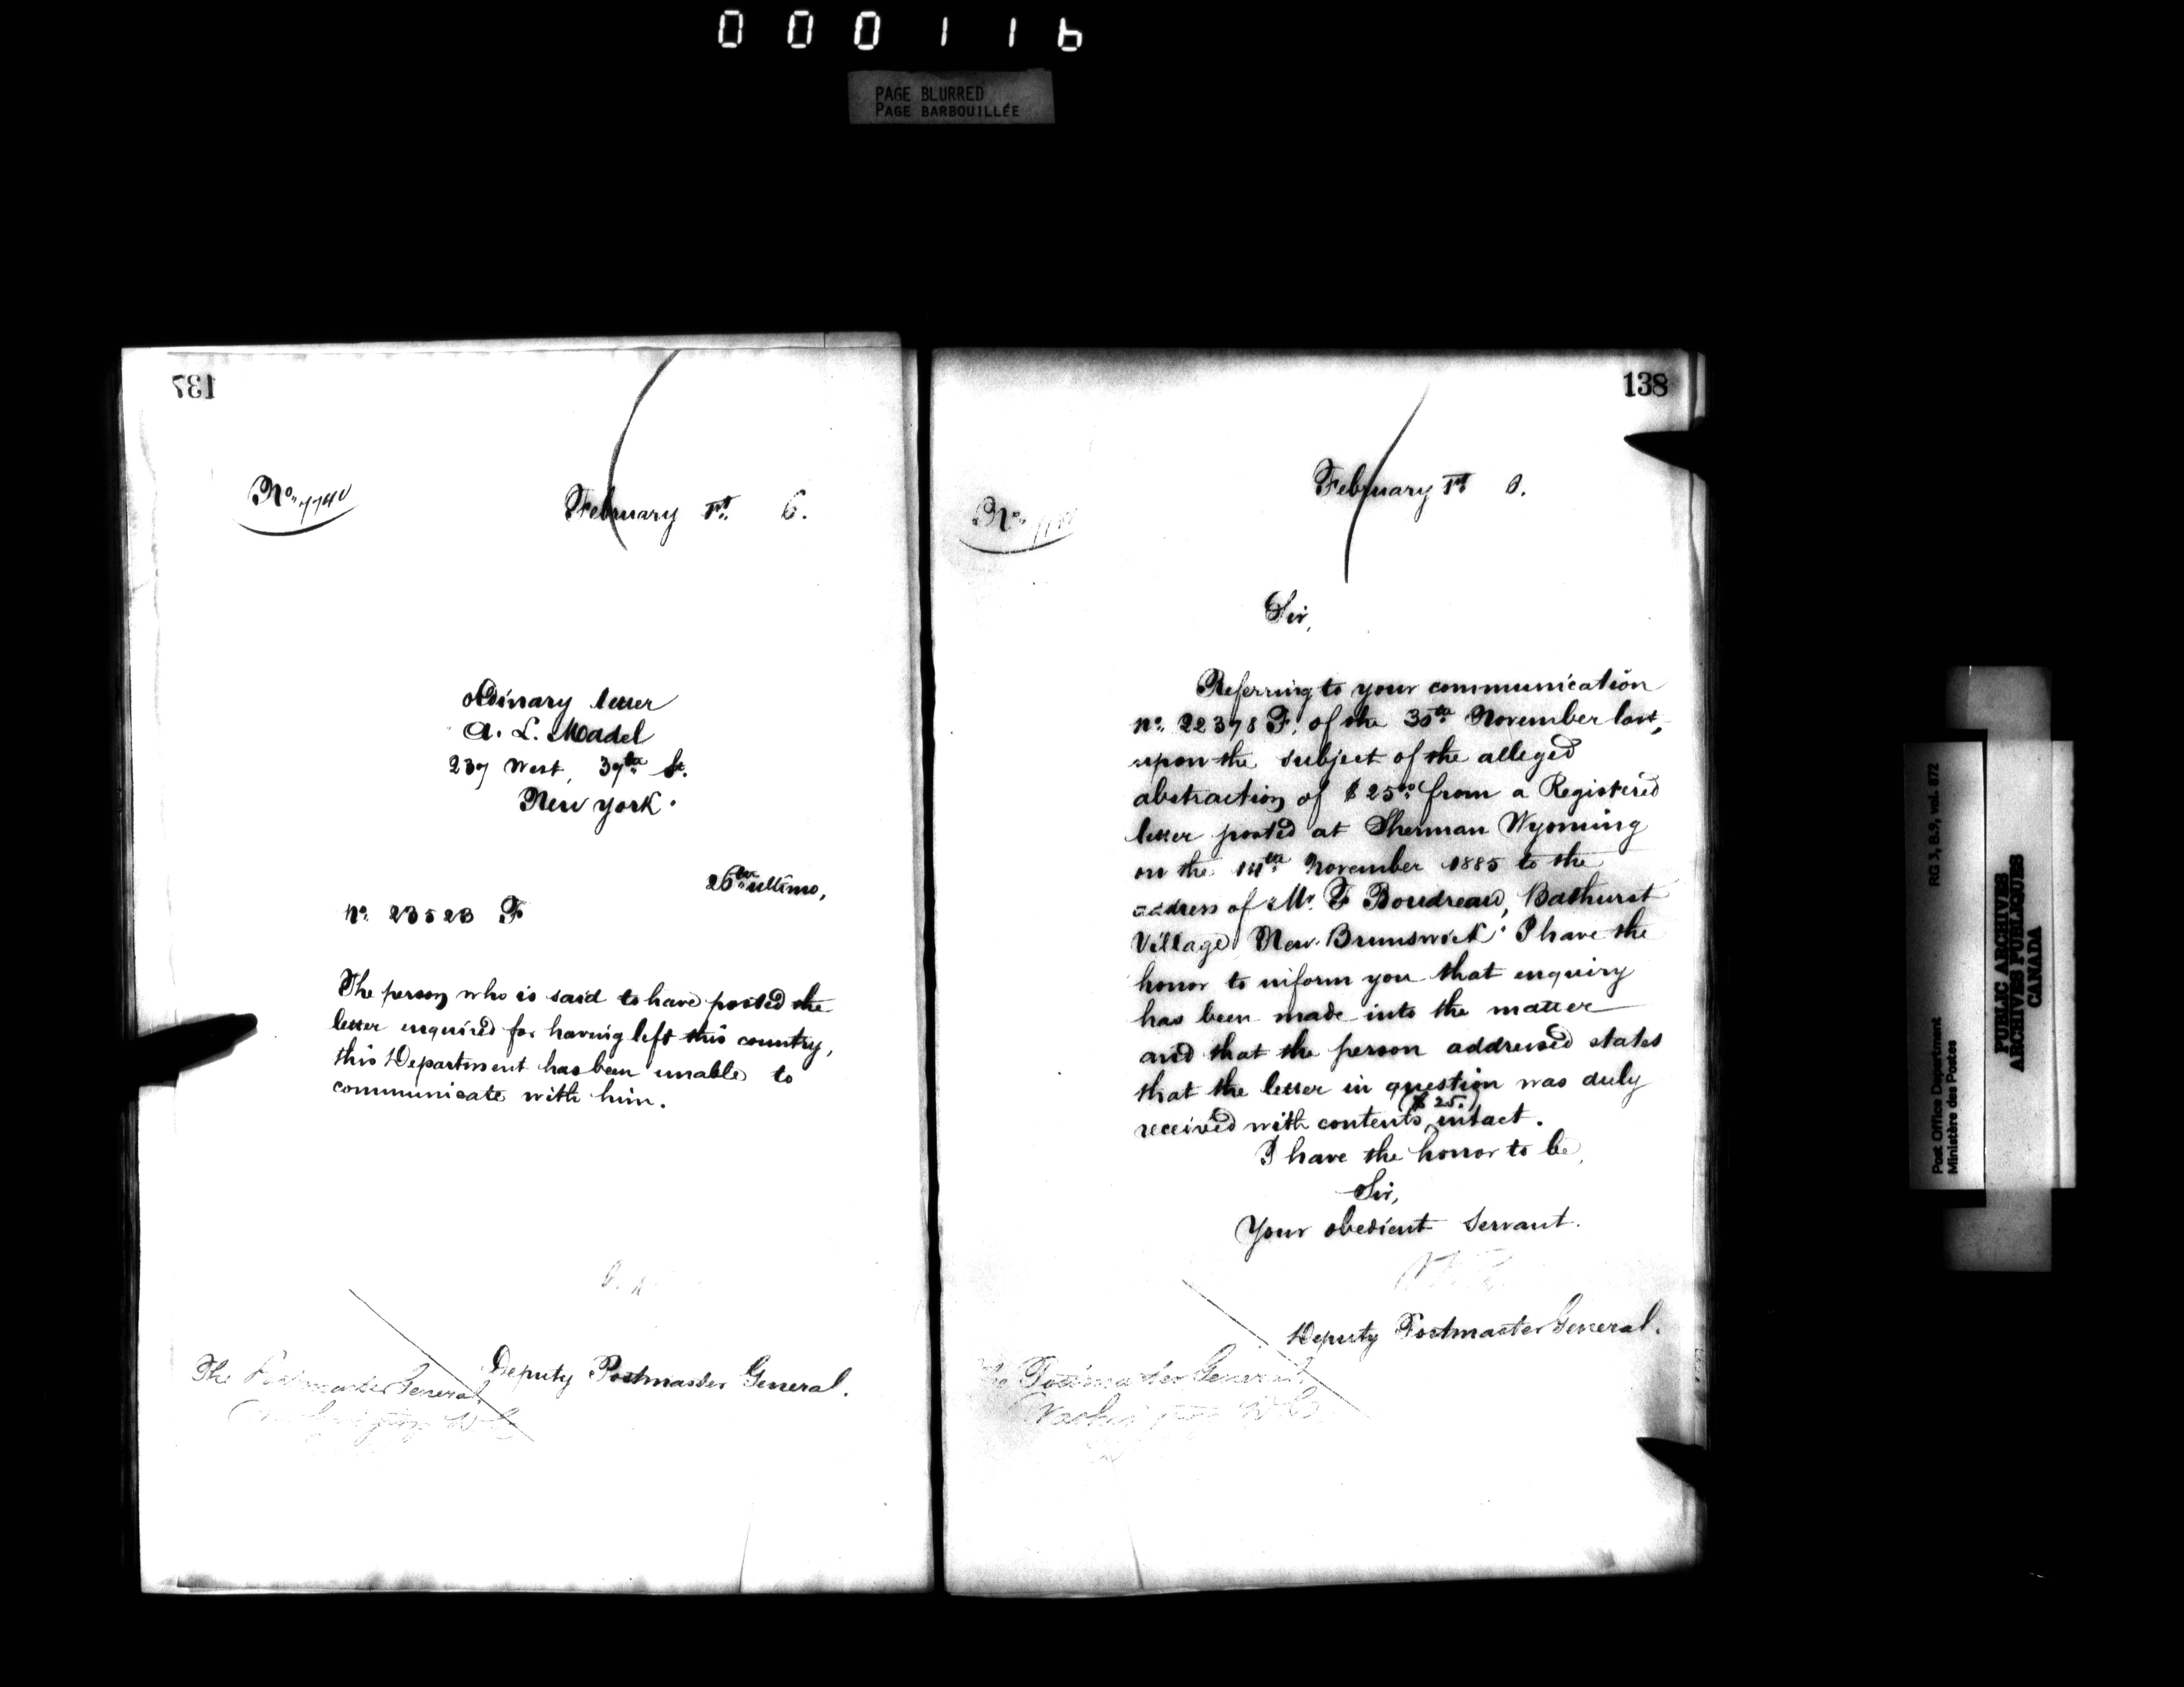 000116
PAGE BLURRED
PAGE BARBOUILLÉE
137
No.
February 1st. 6.
Ordinary letter
A. L. Madel
237 West, 37th St.
New York.
26th ultimo,
No. 23523 F
The person who is said to have posted the
letter enquired for having left this country,
this Department has been unable to
communicate with him.
Deputy Postmaster General.
The Postmaster General
Washington D.C.
138
No.
February 1st 6.
Sir,
Referring to your communication
No. 22378 F. of the 30th November last,
upon the subject of the alleged
abstraction of $25.00 from a Registered
letter posted at Sherman Wyoming
on the 14th November 1885 to the
address of Mr. F Boudreau, Bathurst
Village New Brunswick. I have the
honor to inform you that enquiry
has been made into the matter
and that the person addressed states
that the letter in question was duly
($25.)
received with contents intact.
I have the honor to be,
Sir,
Your obedient Servant.
Deputy Postmaster General.
The Postmaster General
Washington D.C.
Post Office Department
Ministère des Postes
RG 3, B.9, vol. 872
PUBLIC ARCHIVES
ARCHIVES PUBLIQUES
CANADA